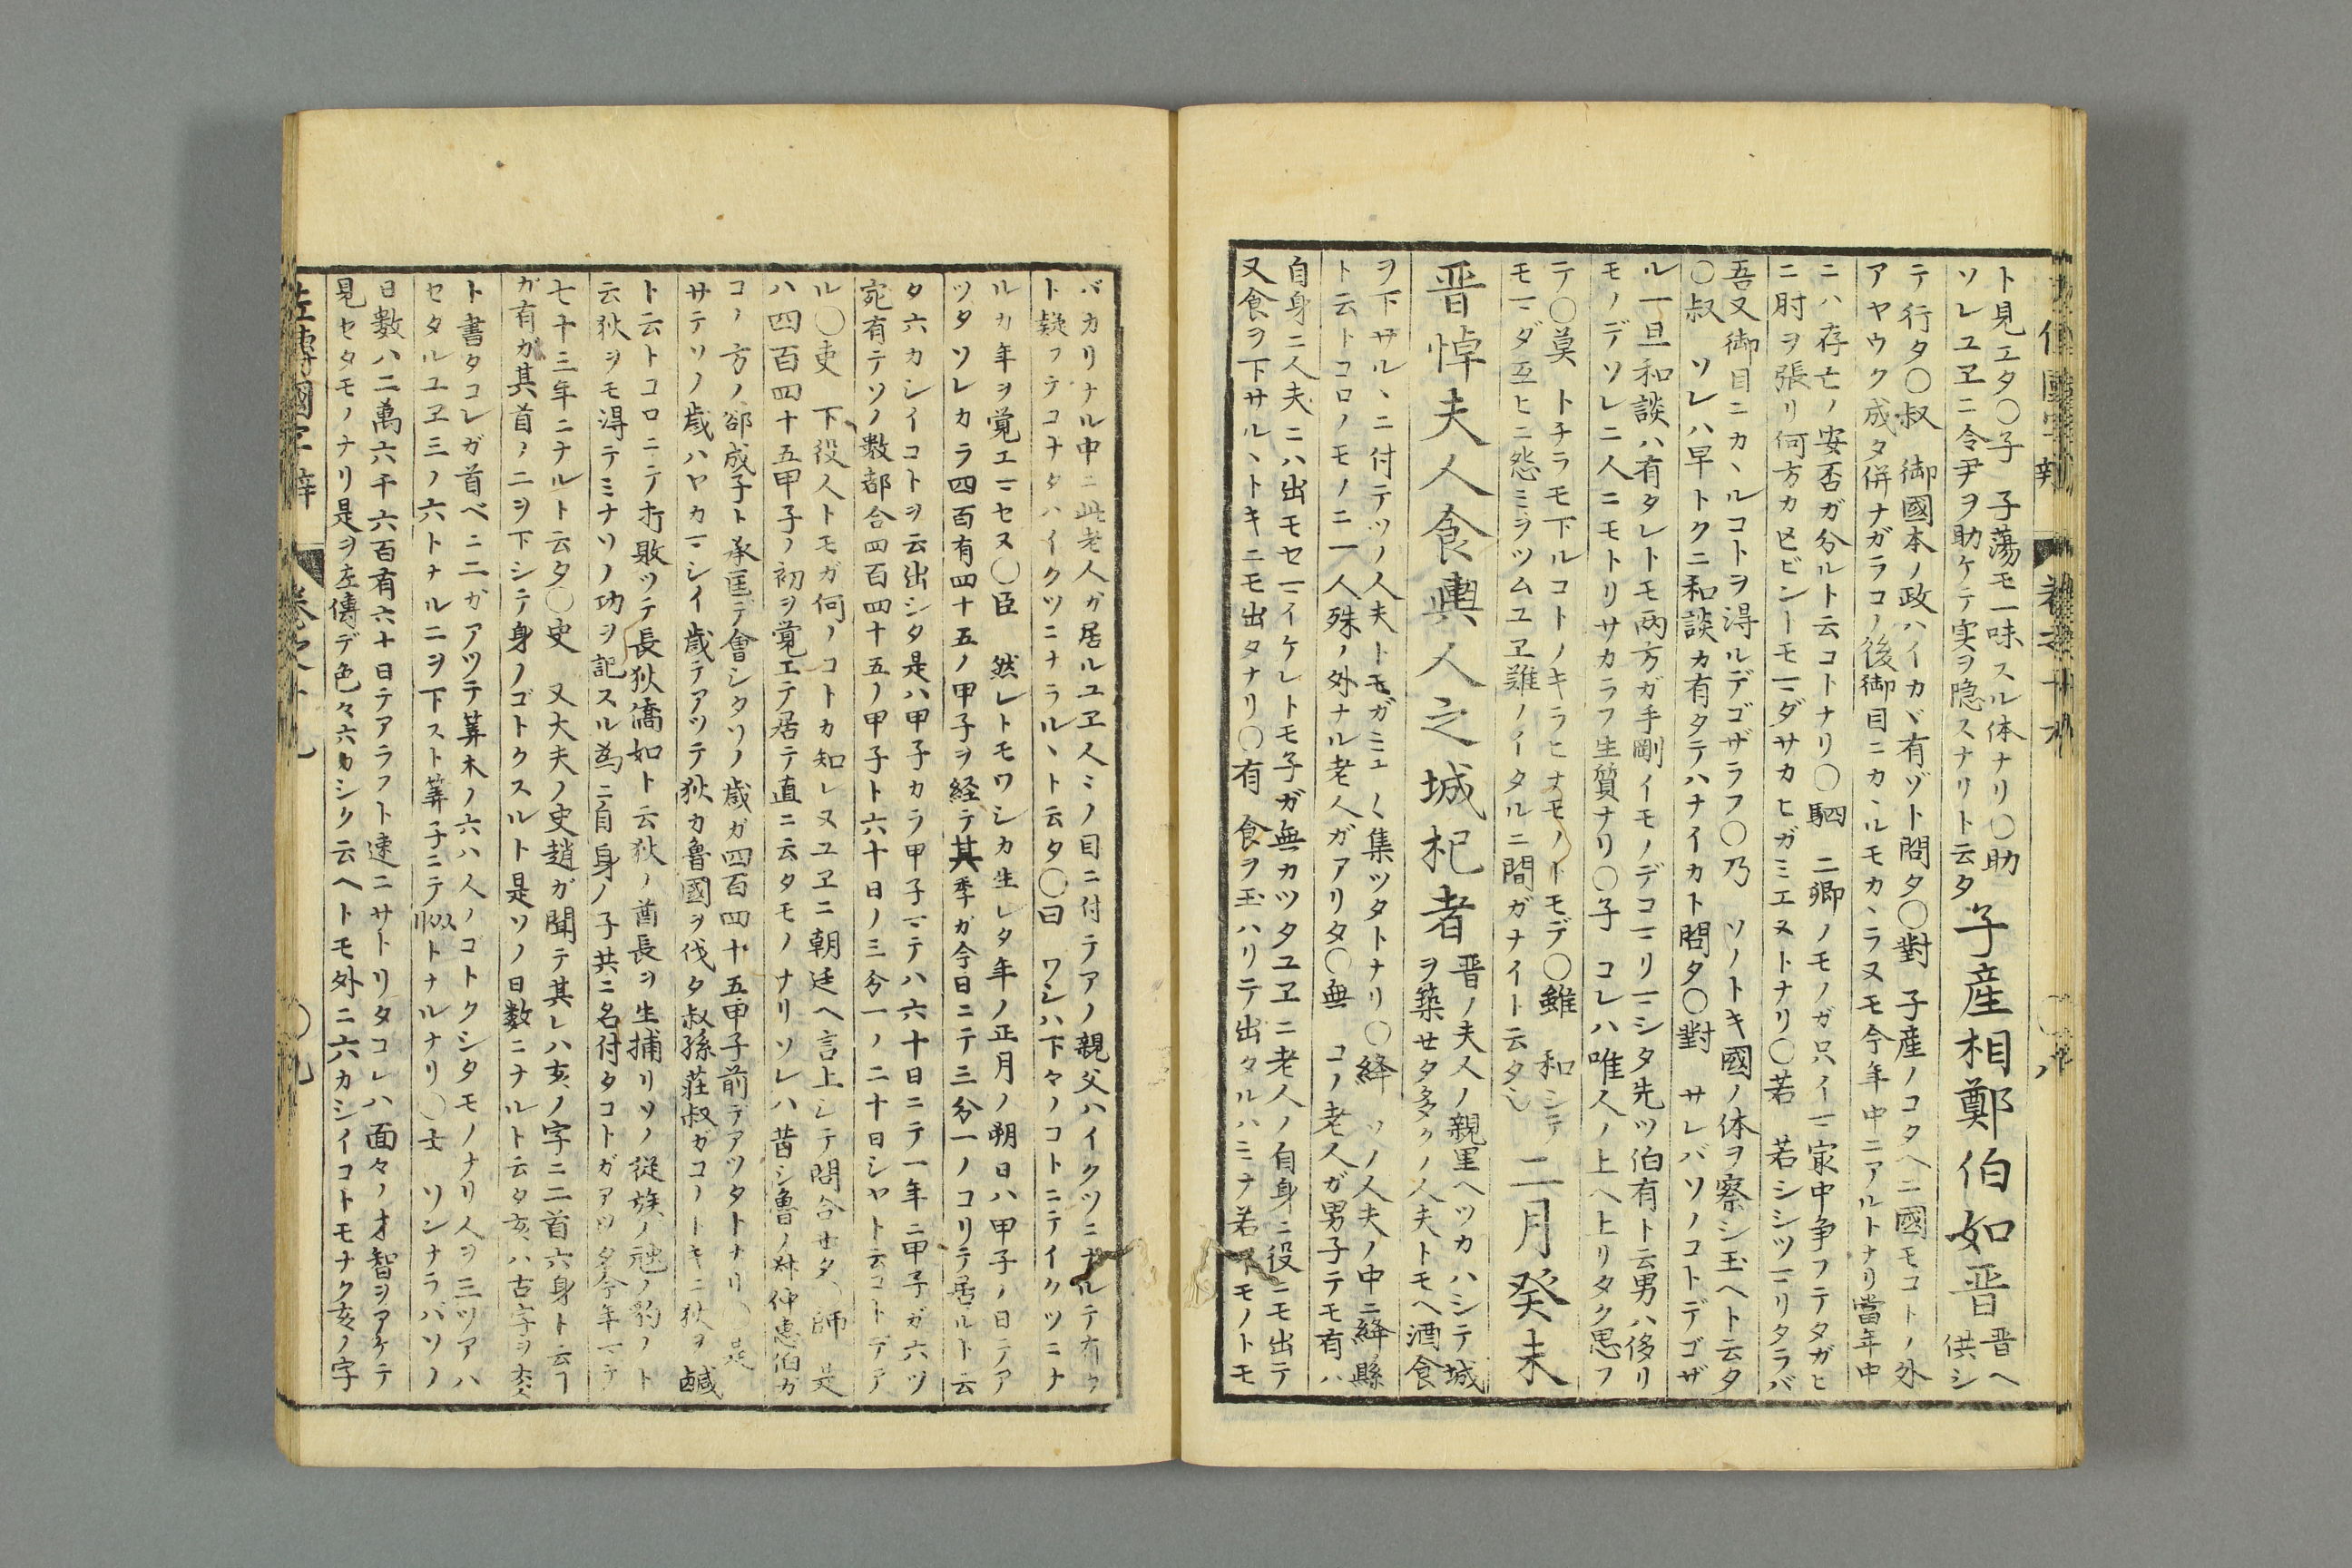 ト見エタ〇子　子蕩モ一味スル体ナリ〇助
ソレユヱニ令尹ヲ助ケテ実ヲ隐スナリト云タ
子産相鄭伯如晋
晋ヘ
供シ
テ行タ〇叔　御國本ノ政ハイカヾ有ヅト問タ〇對　子産ノコタヘニ國モコトノ外
アヤウク成タ併ナガラコノ後御目ニカヽルモカヽラヌモ今年中ニアルトナリ當年中
ニハ存亡ノ安否ガ分ルト云コトナリ〇駟　二卿ノモノガ只イマ家中争フテタガヒ
ニ肘ヲ張リ何方カセビントモマダサカヒガミエヌトナリ〇若　若シシヅマリタラバ
吾又御目ニカヽルコトヲ得ルデゴザラフ〇乃　ソノトキ國ノ体ヲ察シ玉ヘト云タ
〇叔　ソレハ早トクニ和談カ有タテハナイカト問タ〇對　サレバソノコトデゴザ
ル一旦和談ハ有タレトモ両方ガ手剛イモノデコマリマシタ先ツ伯有ト云男ハ侈リ
モノデソレニ人ニモトリサカラフ生質ナリ〇子　コレハ唯人ノ上ヘ上リタク思フ
テ〇莫　トチラモ下ルコトノキラヒナモノトモデ〇雖　和シテ
モマダ互ヒニ怨ミヲツムユヱ難ノイタルニ間ガナイト云タ
二月癸未
晋悼夫人食輿人之城杞者
晋ノ夫人ノ親里ヘツカハシテ城
ヲ築セタ多クノ人夫トモヘ酒食
ヲ下サルヽニ付テソノ人夫トモガミエ〱集ツタトナリ〇絳　ソノ人夫ノ中ニ絳縣
ト云トコロノモノニ一人殊ノ外ナル老人ガアリタ〇無　コノ老人ガ男子テモ有ハ
自身ニ人夫ニハ出モセマイケレトモ子ガ無カツタユヱニ老人ノ自身ニ役ニモ出テ
又食ヲ下サルヽトキニモ出タナリ〇有　食ヲ玉ハリテ出タルハミナ若キモノトモ
バカリナル中ニ此老人ガ居ルユヱ人ミノ目ニ付テアノ親父ハイクツニナルテ有ウ
ト疑フテコナタハイクツニナラルヽト云タ〇曰　ワシハ下々ノコトニテイクツニナ
ルカ年ヲ覚エマセヌ〇臣　然レトモワシカ生レタ年ノ正月ノ朔日ハ甲子ノ日テア
ツタソレカラ四百有四十五ノ甲子ヲ経テ其季ガ今日ニテ三分一ノコリテ居ルト云
タ六カシイコトヲ云出シタ是ハ甲子カラ甲子マテハ六十日ニテ一年ニ甲子ガ六ツ
宛有テソノ数都合四百四十五ノ甲子ト六十日ノ三分一ノ二十日シヤト云コトデア
ル〇吏　下役人トモガ何ノコトカ知レヌユヱニ朝廷ヘ言上シテ問合せタ〇師　是
ハ四百四十五甲子ノ初ヲ覚エテ居テ直ニ云タモノナリソレハ昔シ魯ノ叔仲恵伯ガ
コノ方ノ郤成子ト承匡デ會シタソノ歳ガ四百四十五甲子前デアツタトナリ〇是
サテソノ歳ハヤカマシイ歳テアツテ狄カ魯國ヲ伐タ叔孫荘叔ガコノトキニ狄ヲ鹹
ト云トコロニテ打敗ツテ長狄僑如ト云狄ノ酋長ヲ生捕リソノ従族ノ虺ノ豹ノト
云狄ヲモ淂テミナソノ功ヲ記スル為ニ自身ノ子共ニ名付タコトガアツタ今年マテ
七十三年ニナルト云タ〇史　又大夫ノ史趙ガ聞テ其レハ亥ノ字ニ二首六身ト云ヿ
ガ有ガ其首ノ二ヲ下シテ身ノゴトクスルト是ソノ日数ニナルト云タ亥ハ古字ヲ
ト書タコレガ首ベニ二ガアツテ筭木ノ六ハ人ノゴトクシタモノナリ人ヲ三ツアハ
セタルユヱ三ノ六トナル二ヲ下スト筭子ニテトナルナリ〇士　ソンナラバソノ
日数ハ二萬六千六百有六十日テアラフト速ニサトリタコレハ面々ノ才智ヲアケテ
見セタモノナリ是ヲ左傳デ色々六カシク云ヘトモ外ニ六カシイコトモナク亥ノ字
左傳國字辯　巻之十九　〇九